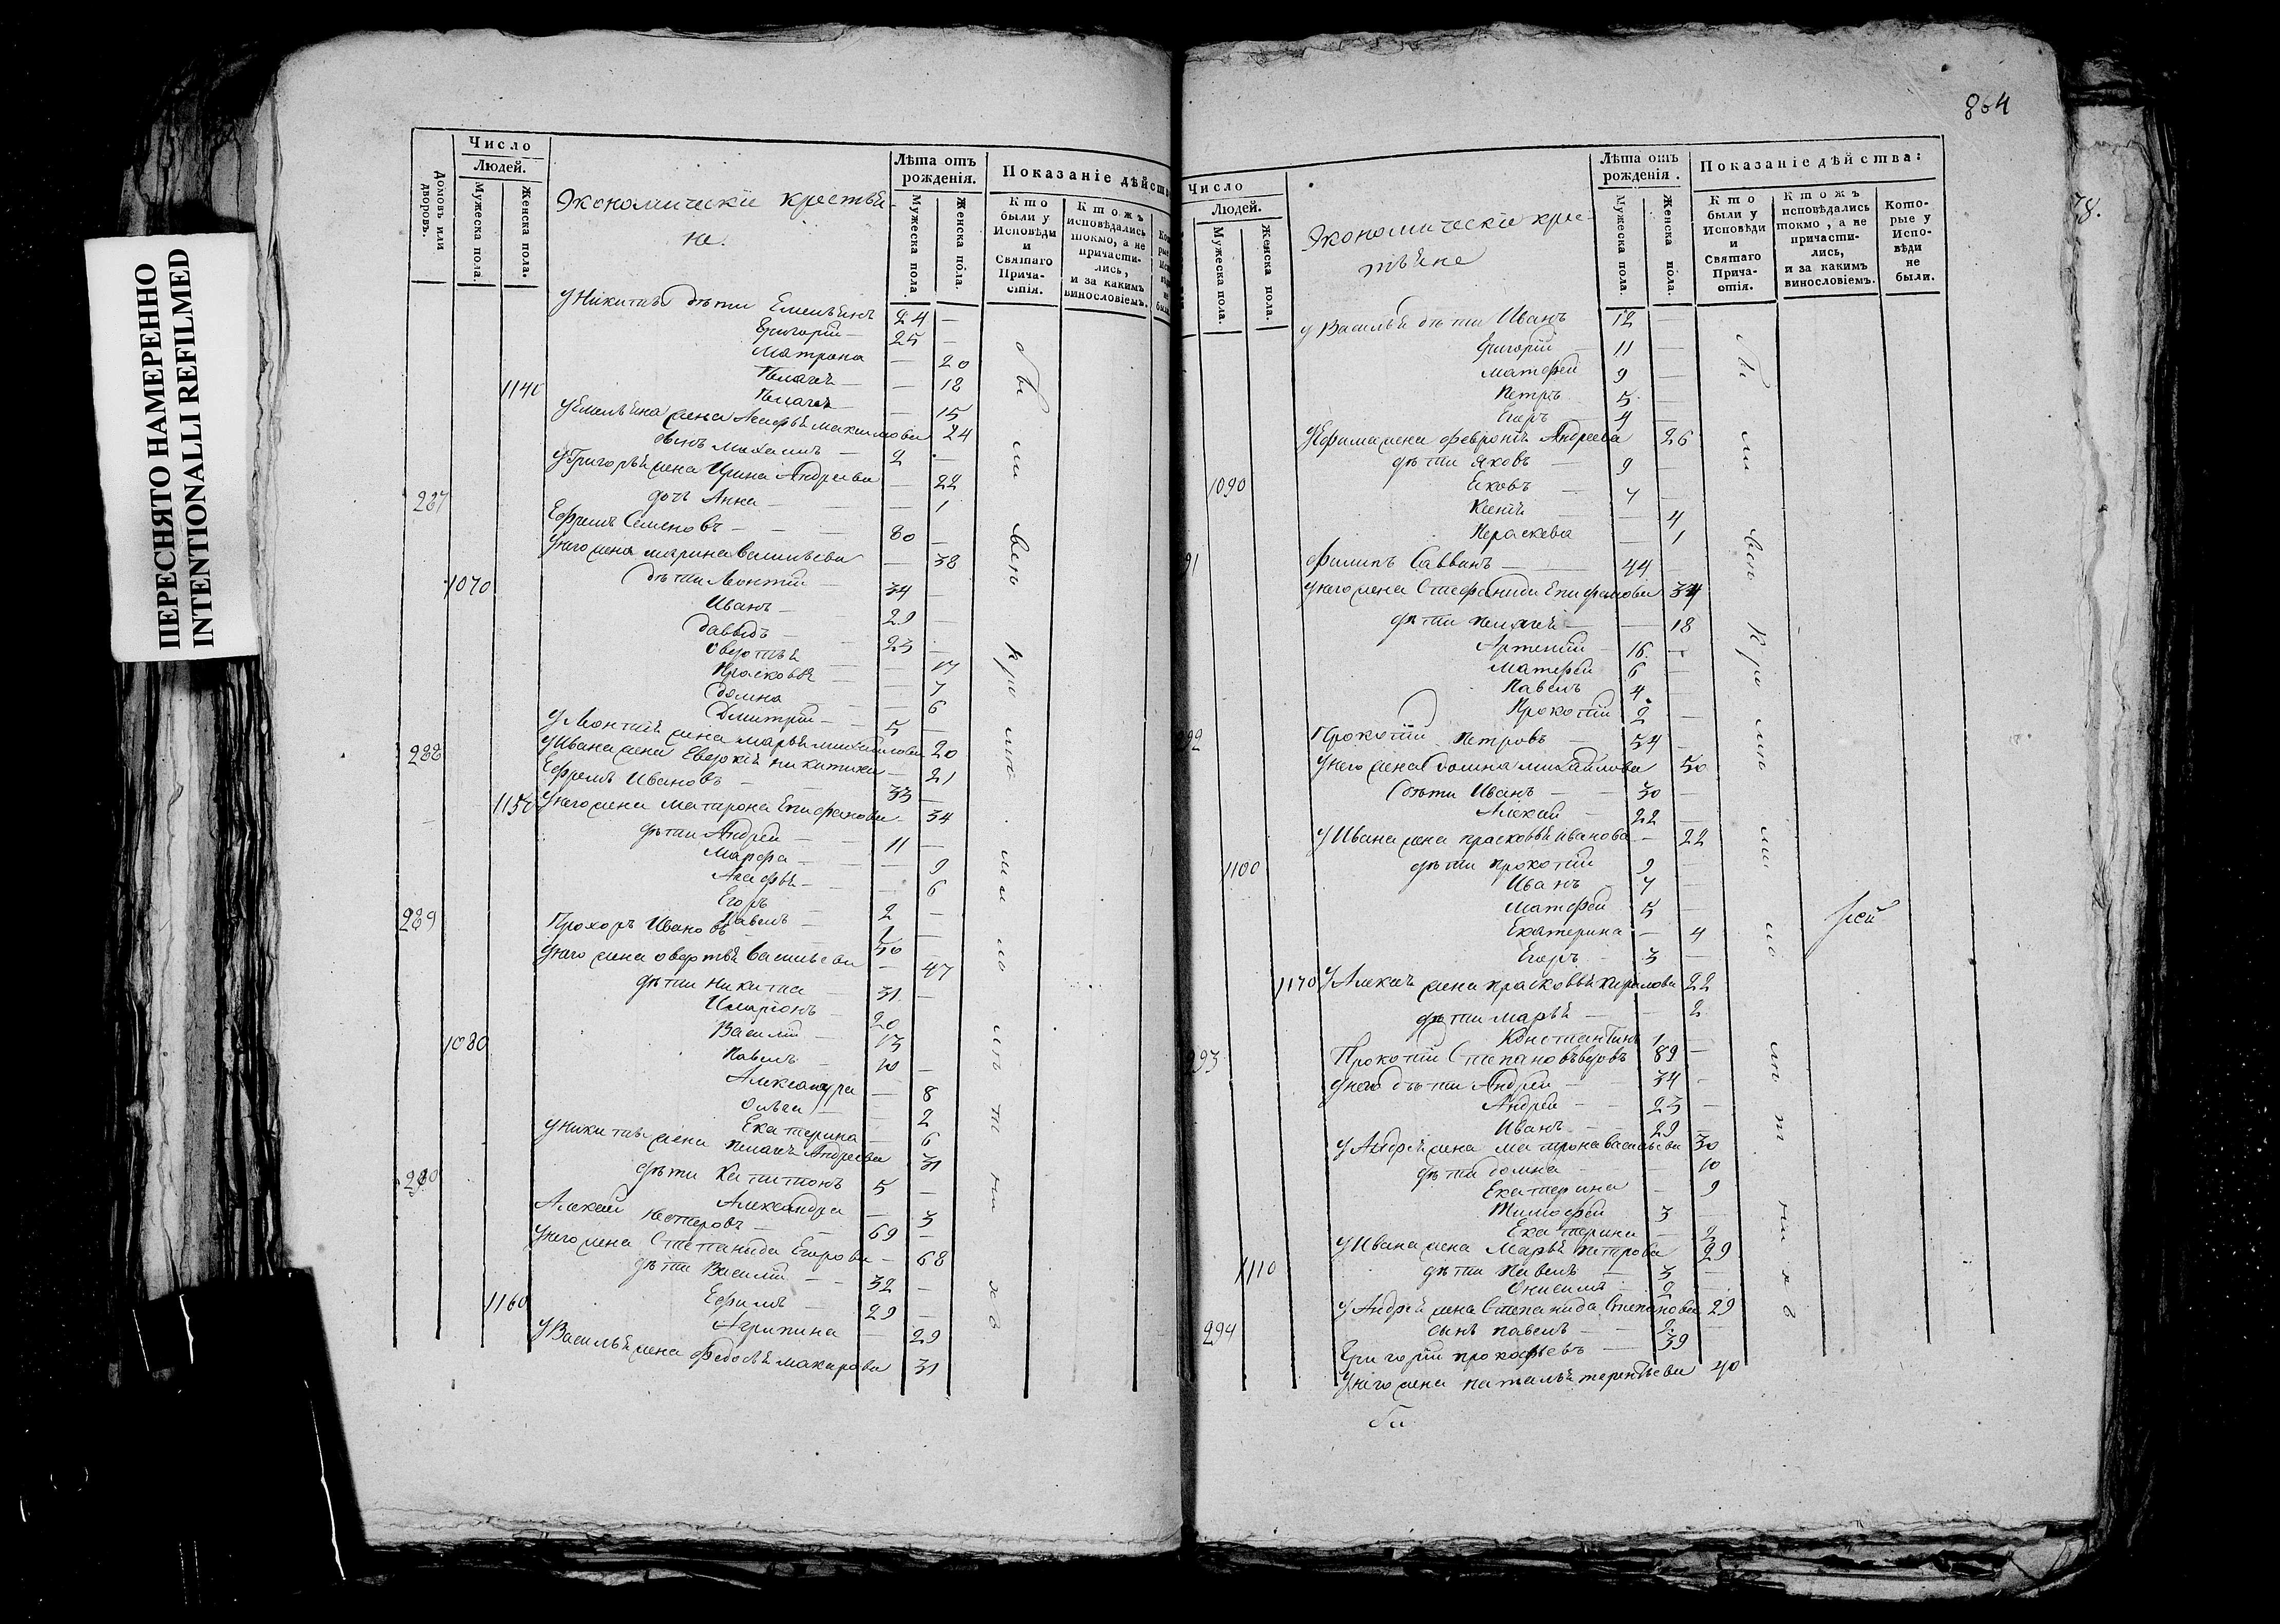 ПЕРЕСНЯТО НАМЕРЕННО
INTENTIONALLI REFILMED
Домовъ или дворовъ.
Число
Людей.
Мужеска пола.
Женска пола.
Экономическіе крестья-
не.
Лѣта отъ рожденія.
Мужеска пола.
Женска пола.
Показаніе дѣйст
Кто были у Исповѣди и Святаго Причастія.
Ктожъ исповѣдались токмо, а не причастились, и за какимъ винословіемъ.
У Никиты дѣти Емельянъ 24 —
Григорій — 25 —
Матрона — 20
Пелагея — — 18
1140 Пелагея — 15
У Емельяна жена Агафья Максимова 24
сынъ Михаилъ — 2 —
У Григорья жена Ирина Андреева — 22
287 дочь Анна — — 1
Ефремъ Семеновъ — — 80 —
У него жена Марина Васильева — 38
1070 дѣти Леонтій — 34 —
Иванъ — 29 —
Давыдъ — 23 —
— 17
Прасковья — — 7
Домна — 6
Дмитрій — 5 —
У Леонтія жена Марья Михайлова 20
288 У Ивана жена Евдокія Никитина — 21
Ефремъ Ивановъ — 33 —
1150 У него жена Матрона Епифанова — 34
дѣти Андрей — 11 —
Марфа — — 9
Агафья — — 6
Егоръ — 2 —
289 Павелъ — 1 —
Прохоръ Ивановъ — 50
У него жена Васильева — 47
дѣти Никита — 31 —
Иларіонъ — 20
1080 Василій — 13
Павелъ — 10 —
Александра — 8
Ольга — — 2
Екатерина — 6
У Никиты жена Пелагея Андреева 31
290 дѣти Капитонъ 5 —
Александра — 3
Алексей Нестеровъ — 69 —
У него жена Степанида Егорова — 68
дѣти Василій — — 32 —
1160 Ефимъ — 29 —
Агрипина — 29
У Василья жена Федосья Макарова 31
864
78.
Число
Людей.
Мужеска пола.
Женска пола.
Экономическіе кре-
стьяне
Лѣта отъ рожденія.
Мужеска пола.
Женска пола.
Показаніе дѣйства:
Кто были у Исповѣди и Святаго Причастія.
Ктожъ исповѣдались токмо, а не причастились, и за какимъ винословіемъ.
Которые у Исповѣди не были.
У Василья дѣти Иванъ 12 —
Григорій — 11 —
Матфей 9 —
Петръ 5 —
Егоръ — 4 —
У Ефима жена Февронія Андреева 26
дѣти Яковъ — 9 —
1090 Яковъ — 7 —
Ксенія — — 4
Параскева — 1
91 Филипъ Саввинъ — 44 —
У него жена Стефанида Епифанова 34
дѣти Пелагея — — 18
Артемій — 16 —
Матфей 6 —
Павелъ 4 —
Прокопій 2 —
92 Прокопій Петровъ — 54 —
У него жена Домна Михайлова 50
дѣти Иванъ — — 30 —
Алексей — 22 —
У Ивана жена Прасковья Иванова — 22
1100 дѣти Прокопій 9 —
Иванъ 7 —
Матфей 5 —
Екатерина — 4
Егоръ — 3 —
1170 У Алексея жена Прасковья Кирилова 22
дѣти Марья — — 2
Константинъ 1 —
93 Прокопій Степановъ вдовъ 89 —
У него дѣти Андрей — 34 —
Андрей — — 23 —
Иванъ — — 29 —
У Андрея жена Матрона Васильева 30
дѣти Домна — 10
Екатерина — 9
Тимофей 3 —
Екатерина — 2
У Ивана жена Марья Петрова 29
1110 дѣти Павелъ — 3 —
Онисимъ — 2
У Андрея жена Степанида Степанова 29
294 сынъ Павелъ — 2 —
Григорій Прокофьевъ — 39
У него жена Наталья Терентьева 40